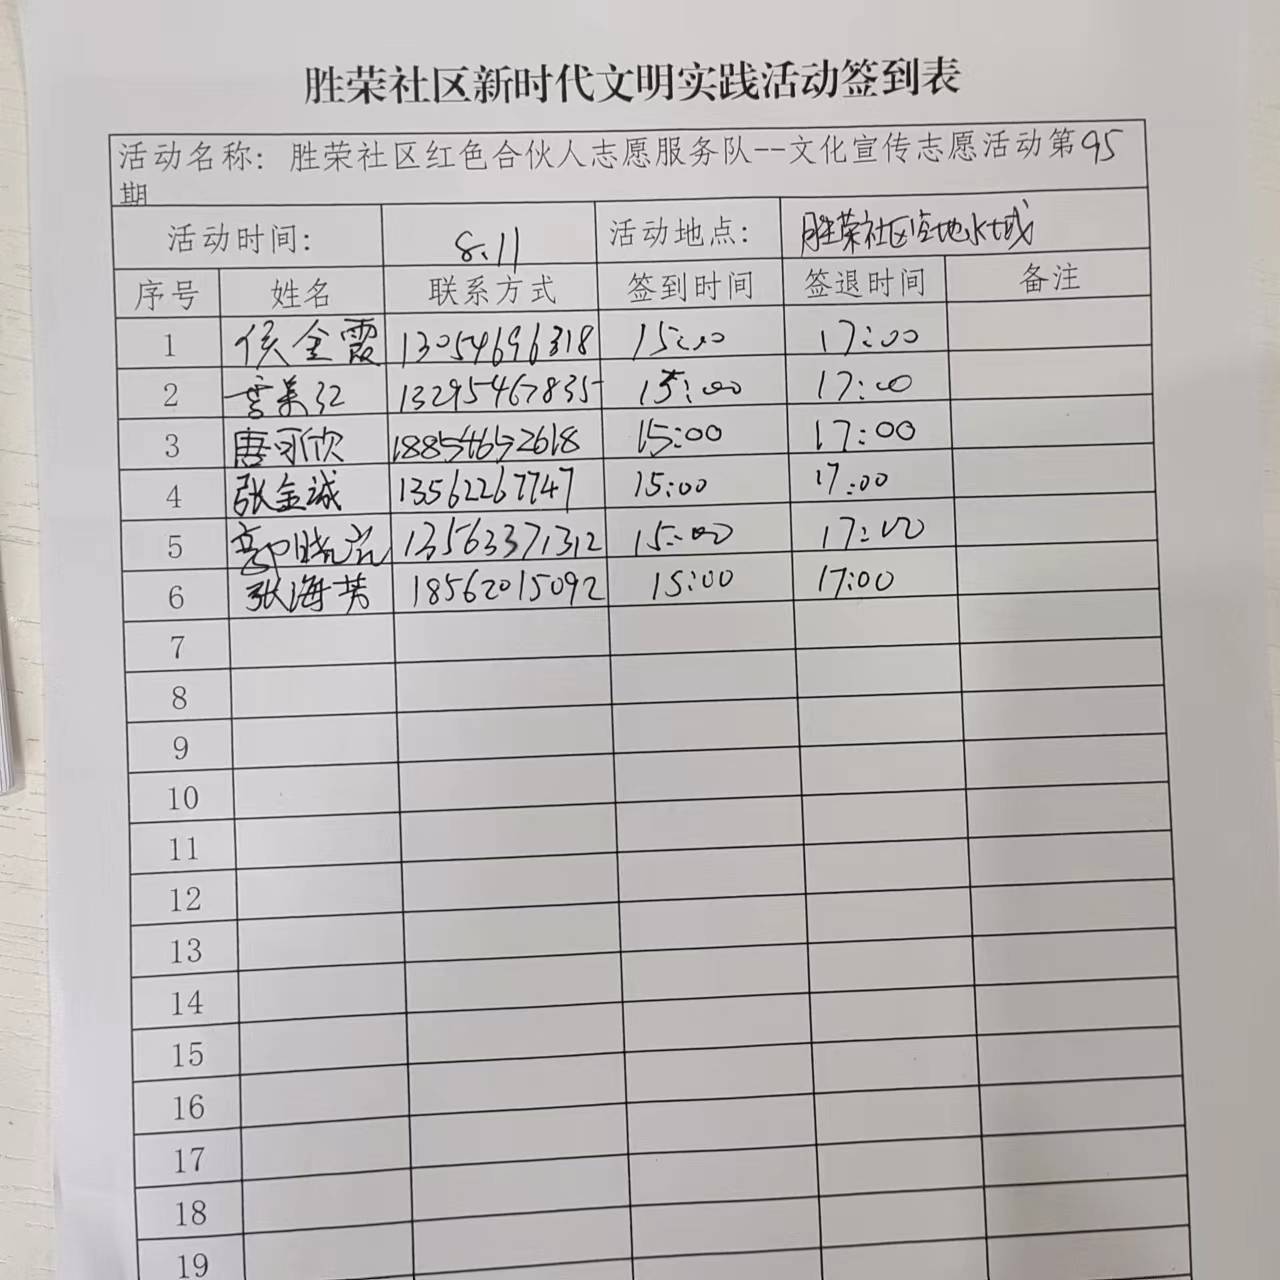 胜荣社区新时代文明实践活动签到表
活动名称：胜荣社区红色合伙人志愿服务队--文化宣传志愿活动第95
期
活动时间： 8.11 活动地点： 胜荣社区 水域
序号 姓名 联系方式 签到时间 签退时间 备注
1 侯金霞 13054696318 15:00 17:00
2 李美红 13295467835 15:00 17:00
3 唐可欣 18854652618 15:00 17:00
4 张金诚 13562267747 15:00 17:00
5 13563371312 15:00 17:00
6 张海芳 18562015092 15:00 17:00
7
8
9
10
11
12
13
14
15
16
17
18
19